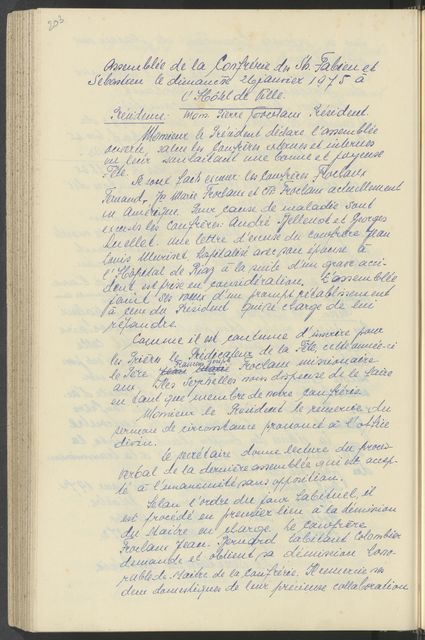 203
Assemblée de la Confrérie des Sts. Fabien et
Sébastien le dimanche 26 janvier 1975 à
l'Hôtel de Ville.
Présidence: Mons Pierre Président
Monsieur le Président déclare l'assemblée
ouverte, salue les Confrères externes et internes
en leur souhaitant une bonne et joyeuse
Fête.
Se sont fait excuser les Confrères
Fernand, Jn Marie et actuellement
en Amérique. Pour cause de maladie sont
excusés les Confrères: André Jellenot et Georges
Une lettre d'excuse du confrère Jean
Louis hospitalisé avec son épouse à
l'Hôpital de Riaz à la suite d'un grave acci-
dent est prise en considération. L'assemblée
faisait ses voeux d'un prompt rétablissement
à ceux du Président qui se charge de lui
répondre.
Comme il est coutume d'inscrire pour
les Prières le Prédicateur de la Fête, cette année-ci
le Père missionnaire
aux Iles Seychelles nous dispense de le faire
en tant que membre de notre confrérie.
Monsieur le Président le remercie du
sermon de circonstance prononcé à l'office
divin.
Le secrétaire donne lecture du procès-
verbal de la dernière assemblée qui est accep-
té à l'unanimité sans opposition.
Selon l'ordre du jour habituel, il
est procédé en premier lieu à la démission
du Maître en charge le confrère
Jean Bernard habitant Colombier
demande et obtient sa démission hono-
rable de Maître de la Confrérie. Il remercie ses
deux domestiques de leur précieuse collaboration